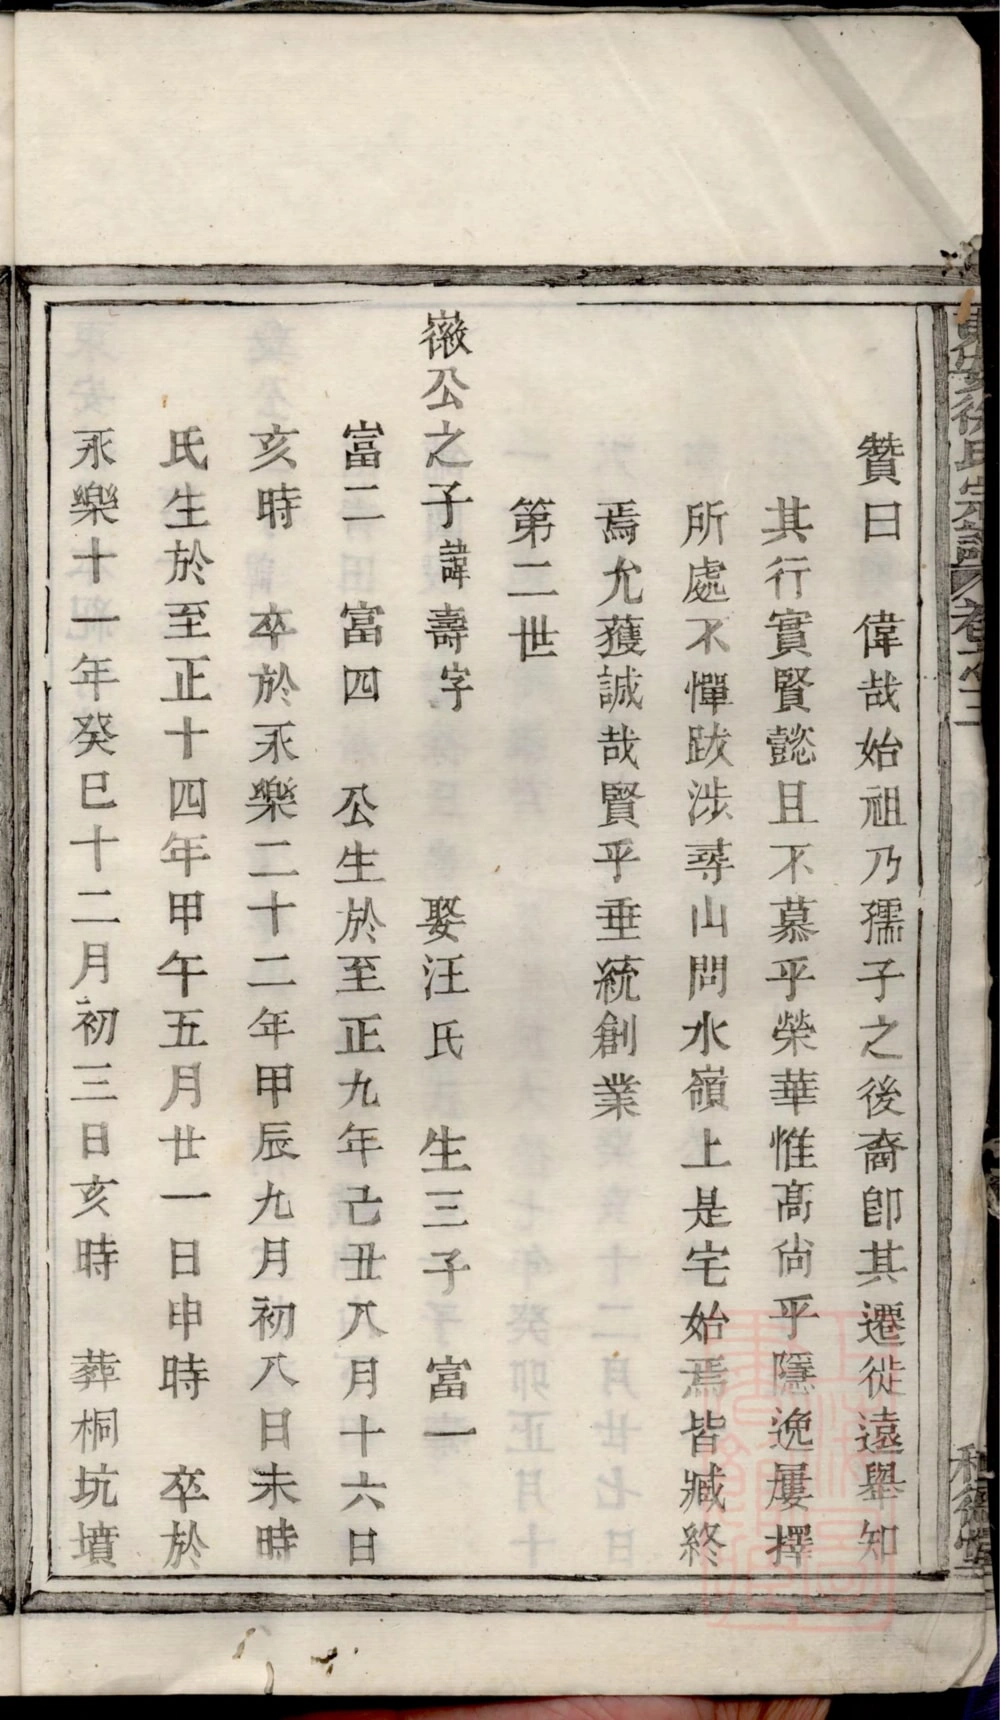 東安徐氏宗譜 卷之二
和德堂
贊曰 偉哉始祖乃孺子之後裔卽其遷徙遠舉知
其行實賢懿且不慕乎榮華惟高尙乎隱逸屢擇
所處不憚跋涉尋山問水嶺上是宅始焉皆臧終
焉允獲誠哉賢乎垂統創業
第二世
徽公之子諱壽字 娶汪氏 生三子 富一
富二 富四 公生於至正九年己丑八月十六日
亥時 卒於永樂二十二年甲辰九月初八日未時
氏生於至正十四年甲午五月廿一日申時 卒於
永樂十一年癸巳十二月初三日亥時 葬桐坑墳